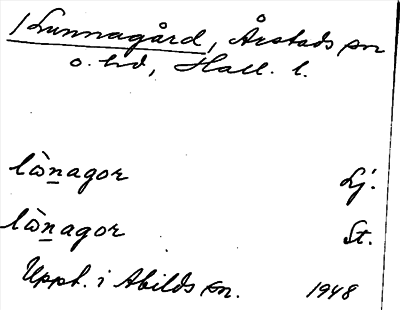 /Lunnagård, Årstads sn
o. hd, Hall. l.
lò̱nagor Lj.
lò̱nagor St.
Uppt. i Abilds sn. 1948